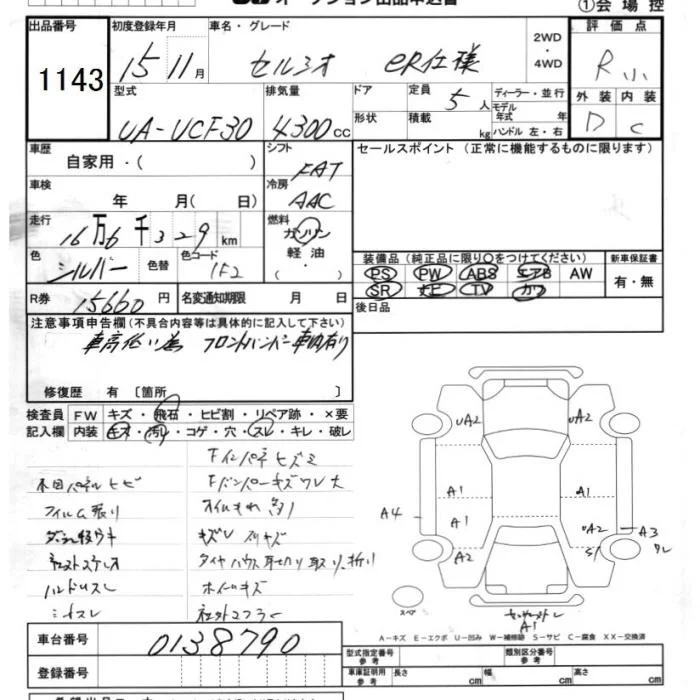 オークション出品申込書
①会場控
出品番号 初度登録年月 車名・グレード 2WD・4WD 評価点
1143 15 11月 セルシオ eR仕様 R小
型式 排気量 ドア 定員 5人 ディーラー・並行 外装 内装
UA-UCF30 4300cc 形状 積載 kg モデル年式 年式 ハンドル 左・右 D C
車歴 自家用・( ) シフト FAT セールスポイント (正常に機能するものに限ります)
車検 年 月( 日) 冷房 AAC
走行 16万6千329km 燃料 ガソリン 軽油・
色 シルバー 色替 色コード 1F2
装備品 (純正品に限り○をつけてください) 新車保証書
PS PW ABS エアB AW 有・無
SR TV カワ
R券 15660円 名変通知期限 月 日 後日品
注意事項申告欄(不具合内容等は具体的に記入して下さい)
車高低い為 フロントバンパー車内有り
修復歴 有〔箇所 〕
検査員 FW キズ・飛石・ヒビ割・リペア跡・×要
記入欄 内装 キズ・汚れ・コゲ・穴・スレ・キレ・破レ
Fインパネ ヒズミ
木目パネル ヒビ Fバンパーキズワレ大
フィルム張り オイルもれ
ハンドルスレ ホイールキズ
シートスレ 社外マフラー
UA2 UA2
A1 A1
A4 A1 UA2 A3
A2 ワレ
スペア
A1
A－キズ E－エクボ U－凹み W－補修跡 S－サビ C－腐食 XX－交換済
車台番号 0138790
登録番号
型式指定番号 参考 類別区分番号 参考
車庫証明用 参考 長さ cm 幅 cm 高さ cm